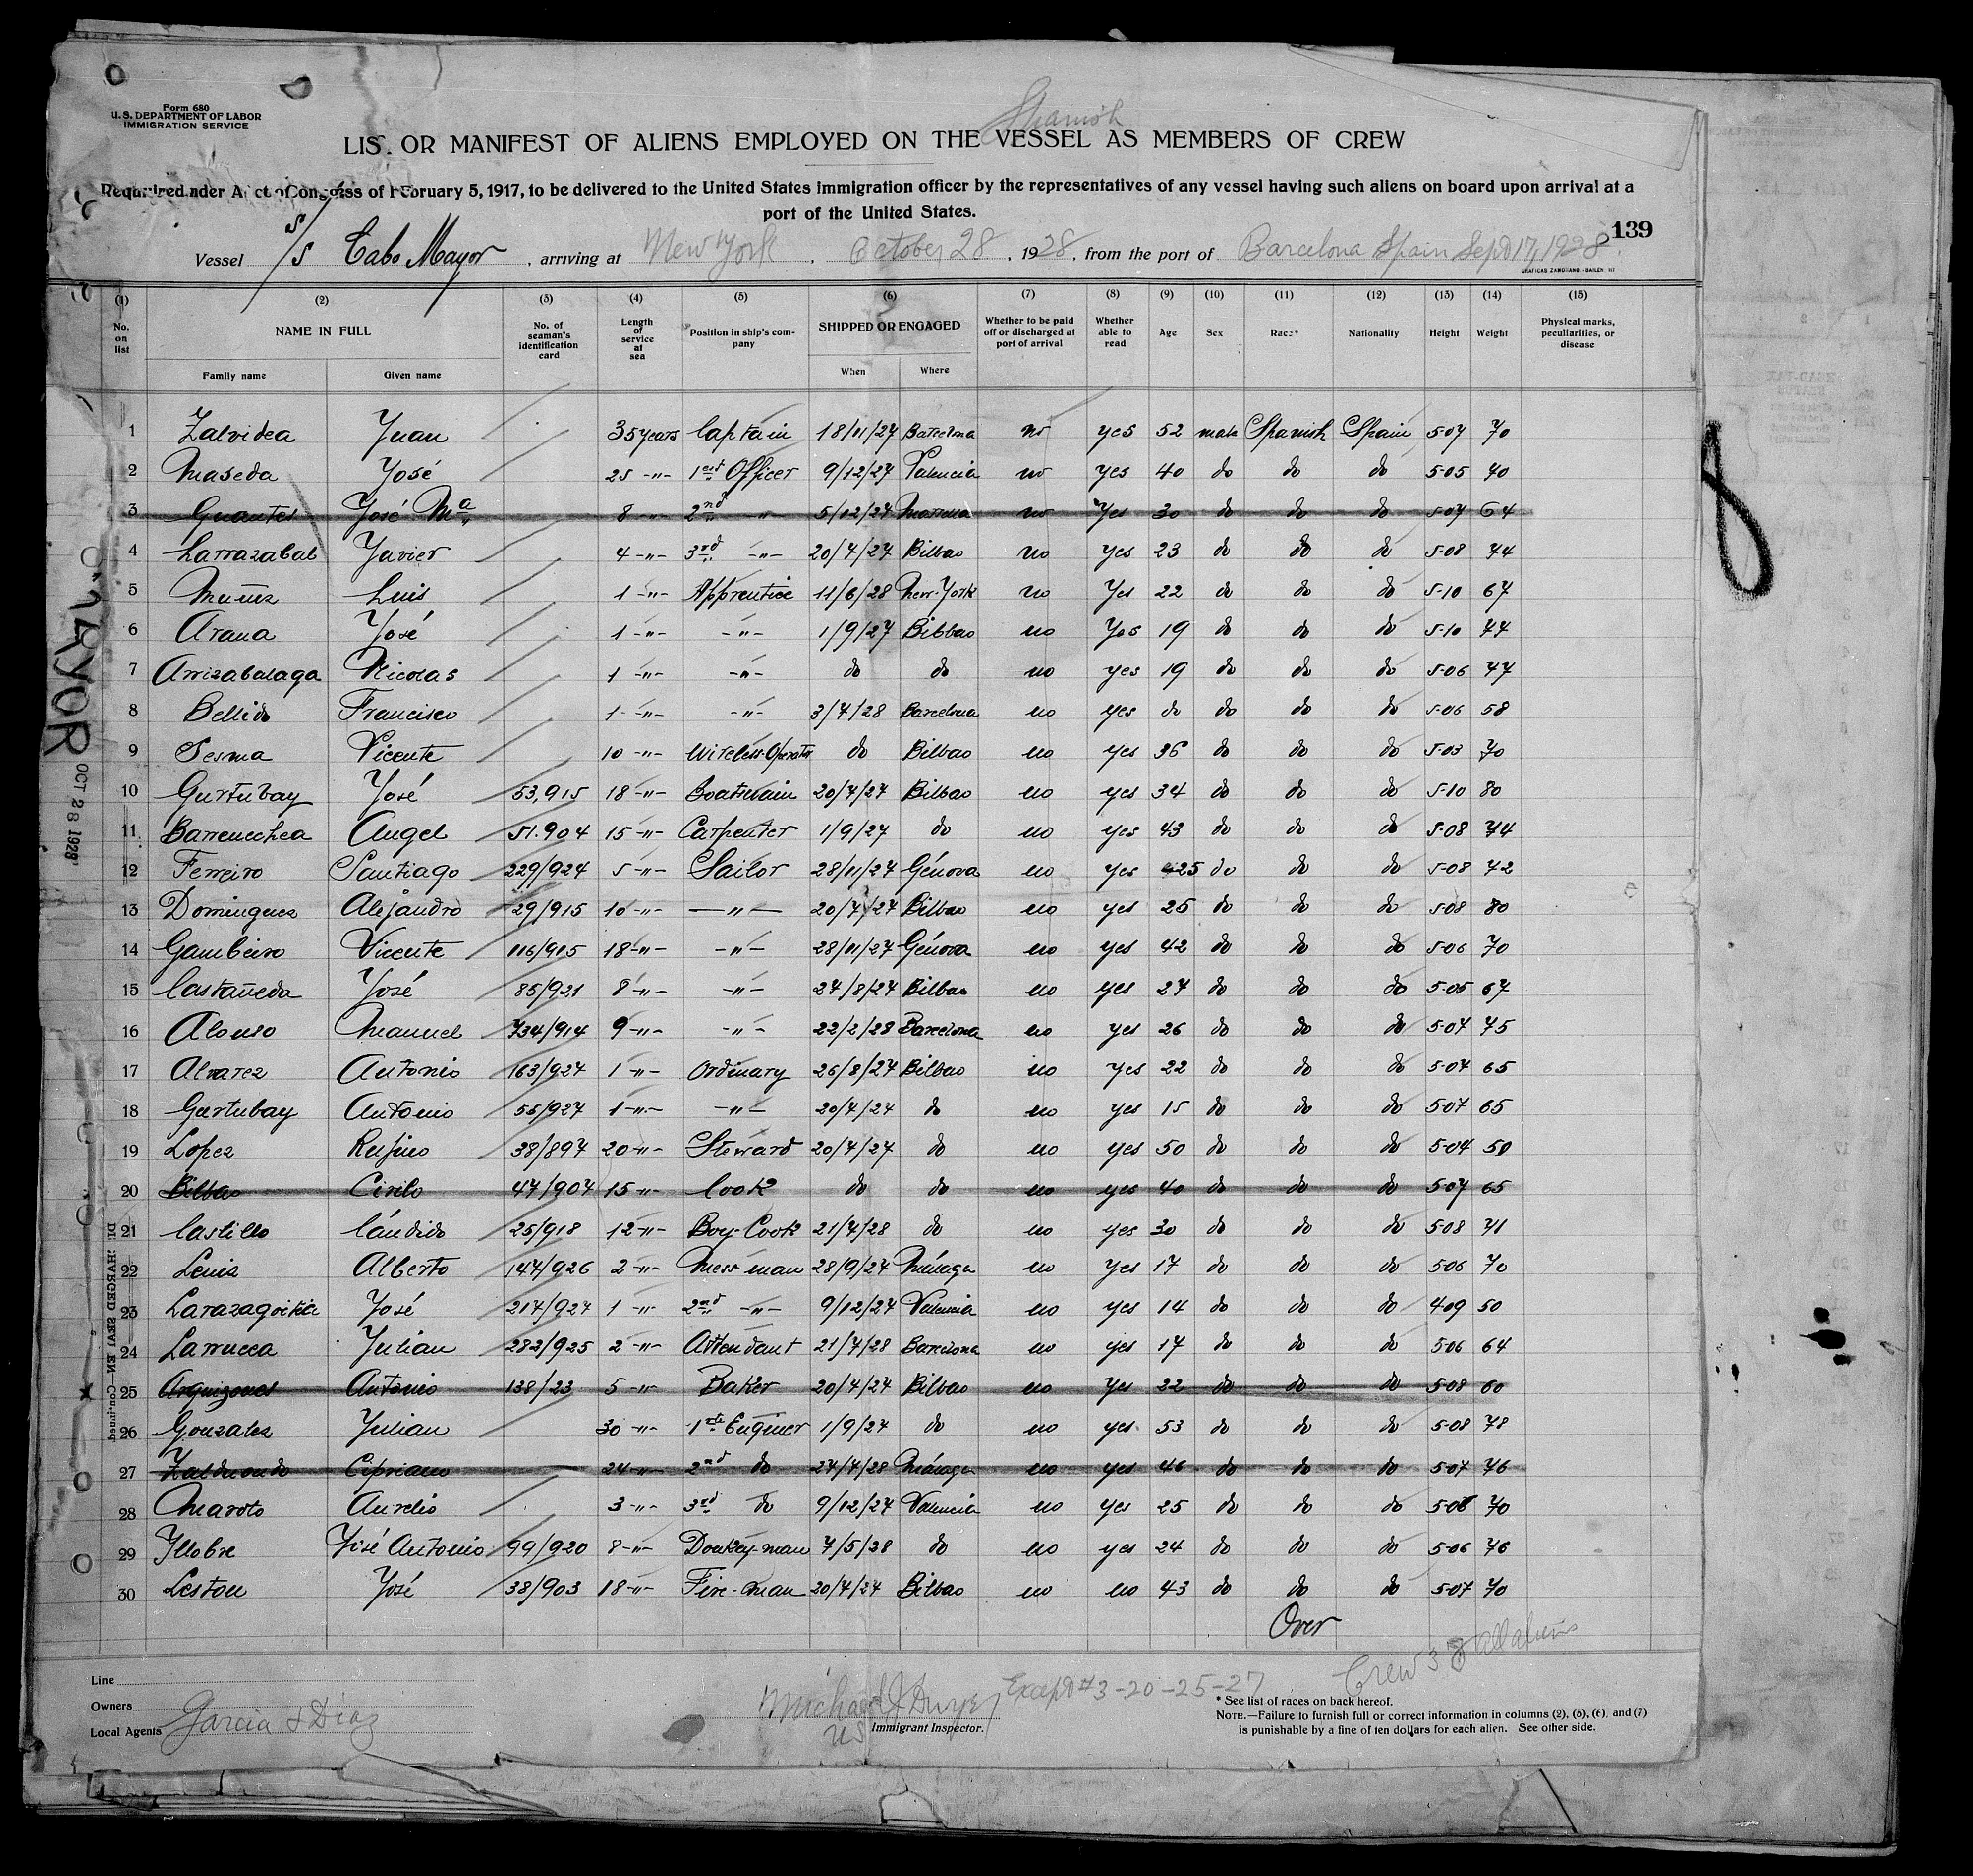 Form 680
U.S. DEPARTMENT OF LABOR
IMMIGRATION SERVICE
Spanish
LIS. OR MANIFEST OF ALIENS EMPLOYED ON THE VESSEL AS MEMBERS OF CREW
of Congress of February 5, 1917, to be delivered to the United States immigration officer by the representatives of any vessel having such aliens on board upon arrival at a
port of the United States.
139
Vessel S/S Cabo Mayor, arriving at New York, October 28, 1928, from the port of Barcelona Spain Sept 17, 1928
GRAFICAS ZAMORANO - BAILEN
(1) (2) (3) (4) (5) (6) (7) (8) (9) (10) (11) (12) (13) (14) (15)
No. on list NAME IN FULL No. of seaman's identification card Length of service at sea Position in ship's company SHIPPED OR ENGAGED Whether to be paid off or discharged at port of arrival Whether able to read Age Sex Race* Nationality Height Weight Physical marks, peculiarities, or disease
Family name Given name When Where
1 Zalvidea Juan 35 years Captain 18/11/27 Barcelona no yes 52 male Spanish Spain 5-07 70
2 Maseda José 25 -"- 1st Officer 9/12/27 Valencia no yes 40 do do do 5-05 70
3 Guantes José Ma 8 -"- 2nd -"- 5/12/27 no yes 30 do do do 5-07 64
4 Larrazabal Javier 4 -"- 3rd -"- 20/7/27 Bilbao no yes 23 do do do 5-08 74
5 Luis 1 -"- Apprentice 11/6/28 New-York no yes 22 do do do 5-10 67
6 Arana José 1 -"- -"- 1/9/27 Bilbao no yes 19 do do do 5-10 77
7 Arrizabalaga Nicolas 1 -"- -"- do do no yes 19 do do do 5-06 77
8 Bellido Francisco 1 -"- -"- 3/7/28 Barcelona no yes do do do do 5-06 58
9 Sesma Vicente 10 -"- Wireless-Operator do Bilbao no yes 36 do do do 5-03 70
10 Gurtubay José 53,915 18 -"- Boatswain 20/7/27 Bilbao no yes 34 do do do 5-10 80
11 Barrenechea Angel 51.904 15 -"- Carpenter 1/9/27 do no yes 43 do do do 5-08 74
12 Ferreiro Santiago 229/924 5 -"- Sailor 28/11/27 Génova no yes 25 do do do 5-08 72
13 Dominguez Alejandro 29/915 10 -"- -"- 20/7/27 Bilbao no yes 25 do do do 5-08 80
14 Gambeiro Vicente 116/915 18 -"- -"- 28/11/27 Génova no yes 42 do do do 5-06 70
15 Castañeda José 85/921 8 -"- -"- 27/8/27 Bilbao no yes 27 do do do 5-05 67
16 Alonso Manuel 734/914 9 -"- -"- 22/2/28 Barcelona no yes 26 do do do 5-07 75
17 Alvarez Antonio 163/927 1 -"- Ordinary 26/8/27 Bilbao no yes 22 do do do 5-07 65
18 Gurtubay Antonio 55/927 1 -"- -"- 20/7/27 do no yes 15 do do do 5-07 65
19 Lopez Rufino 38/897 20 -"- Steward 20/7/27 do no yes 50 do do do 5-04 50
20 Bilbao Cirilo 47/907 15 -"- Cook do do no yes 40 do do do 5-07 65
21 Castillo Cándido 25/918 12 -"- Boy-Cook 21/7/28 do no yes 30 do do do 5-08 71
22 Alberto 147/926 2 -"- Mess man 28/9/27 Málaga no yes 17 do do do 5-06 70
23 Larazagoitia José 217/927 1 -"- 2nd -"- 9/12/27 Valencia no yes 14 do do do 4-09 50
24 Larrucea Julian 282/925 2 -"- Attendant 21/7/28 Barcelona no yes 17 do do do 5-06 64
25 Antonio 138/23 5 -"- Baker 20/7/27 Bilbao no yes 22 do do do 5-08 60
26 Gonzalez Julian 30 -"- 1st Enginer 1/9/27 do no yes 53 do do do 5-08 78
27 Zaldumondo Cipriano 24 -"- 2nd do 27/7/28 Málaga no yes 46 do do do 5-07 76
28 Maroto Aurelio 3 -"- 3rd do 9/12/27 Valencia no yes 25 do do do 5-08 70
29 Yllobre José Antonio 99/920 8 -"- Donkey-man 7/5/28 do no yes 24 do do do 5-06 76
30 Leston José 38/903 18 -"- Fire-man 20/7/27 Bilbao no no 43 do do do 5-07 70
Over
Crew 38 All aliens
Line
Owners
Local Agents Garcia & Diaz
Michael J Dwyer
US Immigrant Inspector.
Except # 3-20-25-27
* See list of races on back hereof.
NOTE.—Failure to furnish full or correct information in columns (2), (5), (6), and (7)
is punishable by a fine of ten dollars for each alien. See other side.
OCT 28 1928